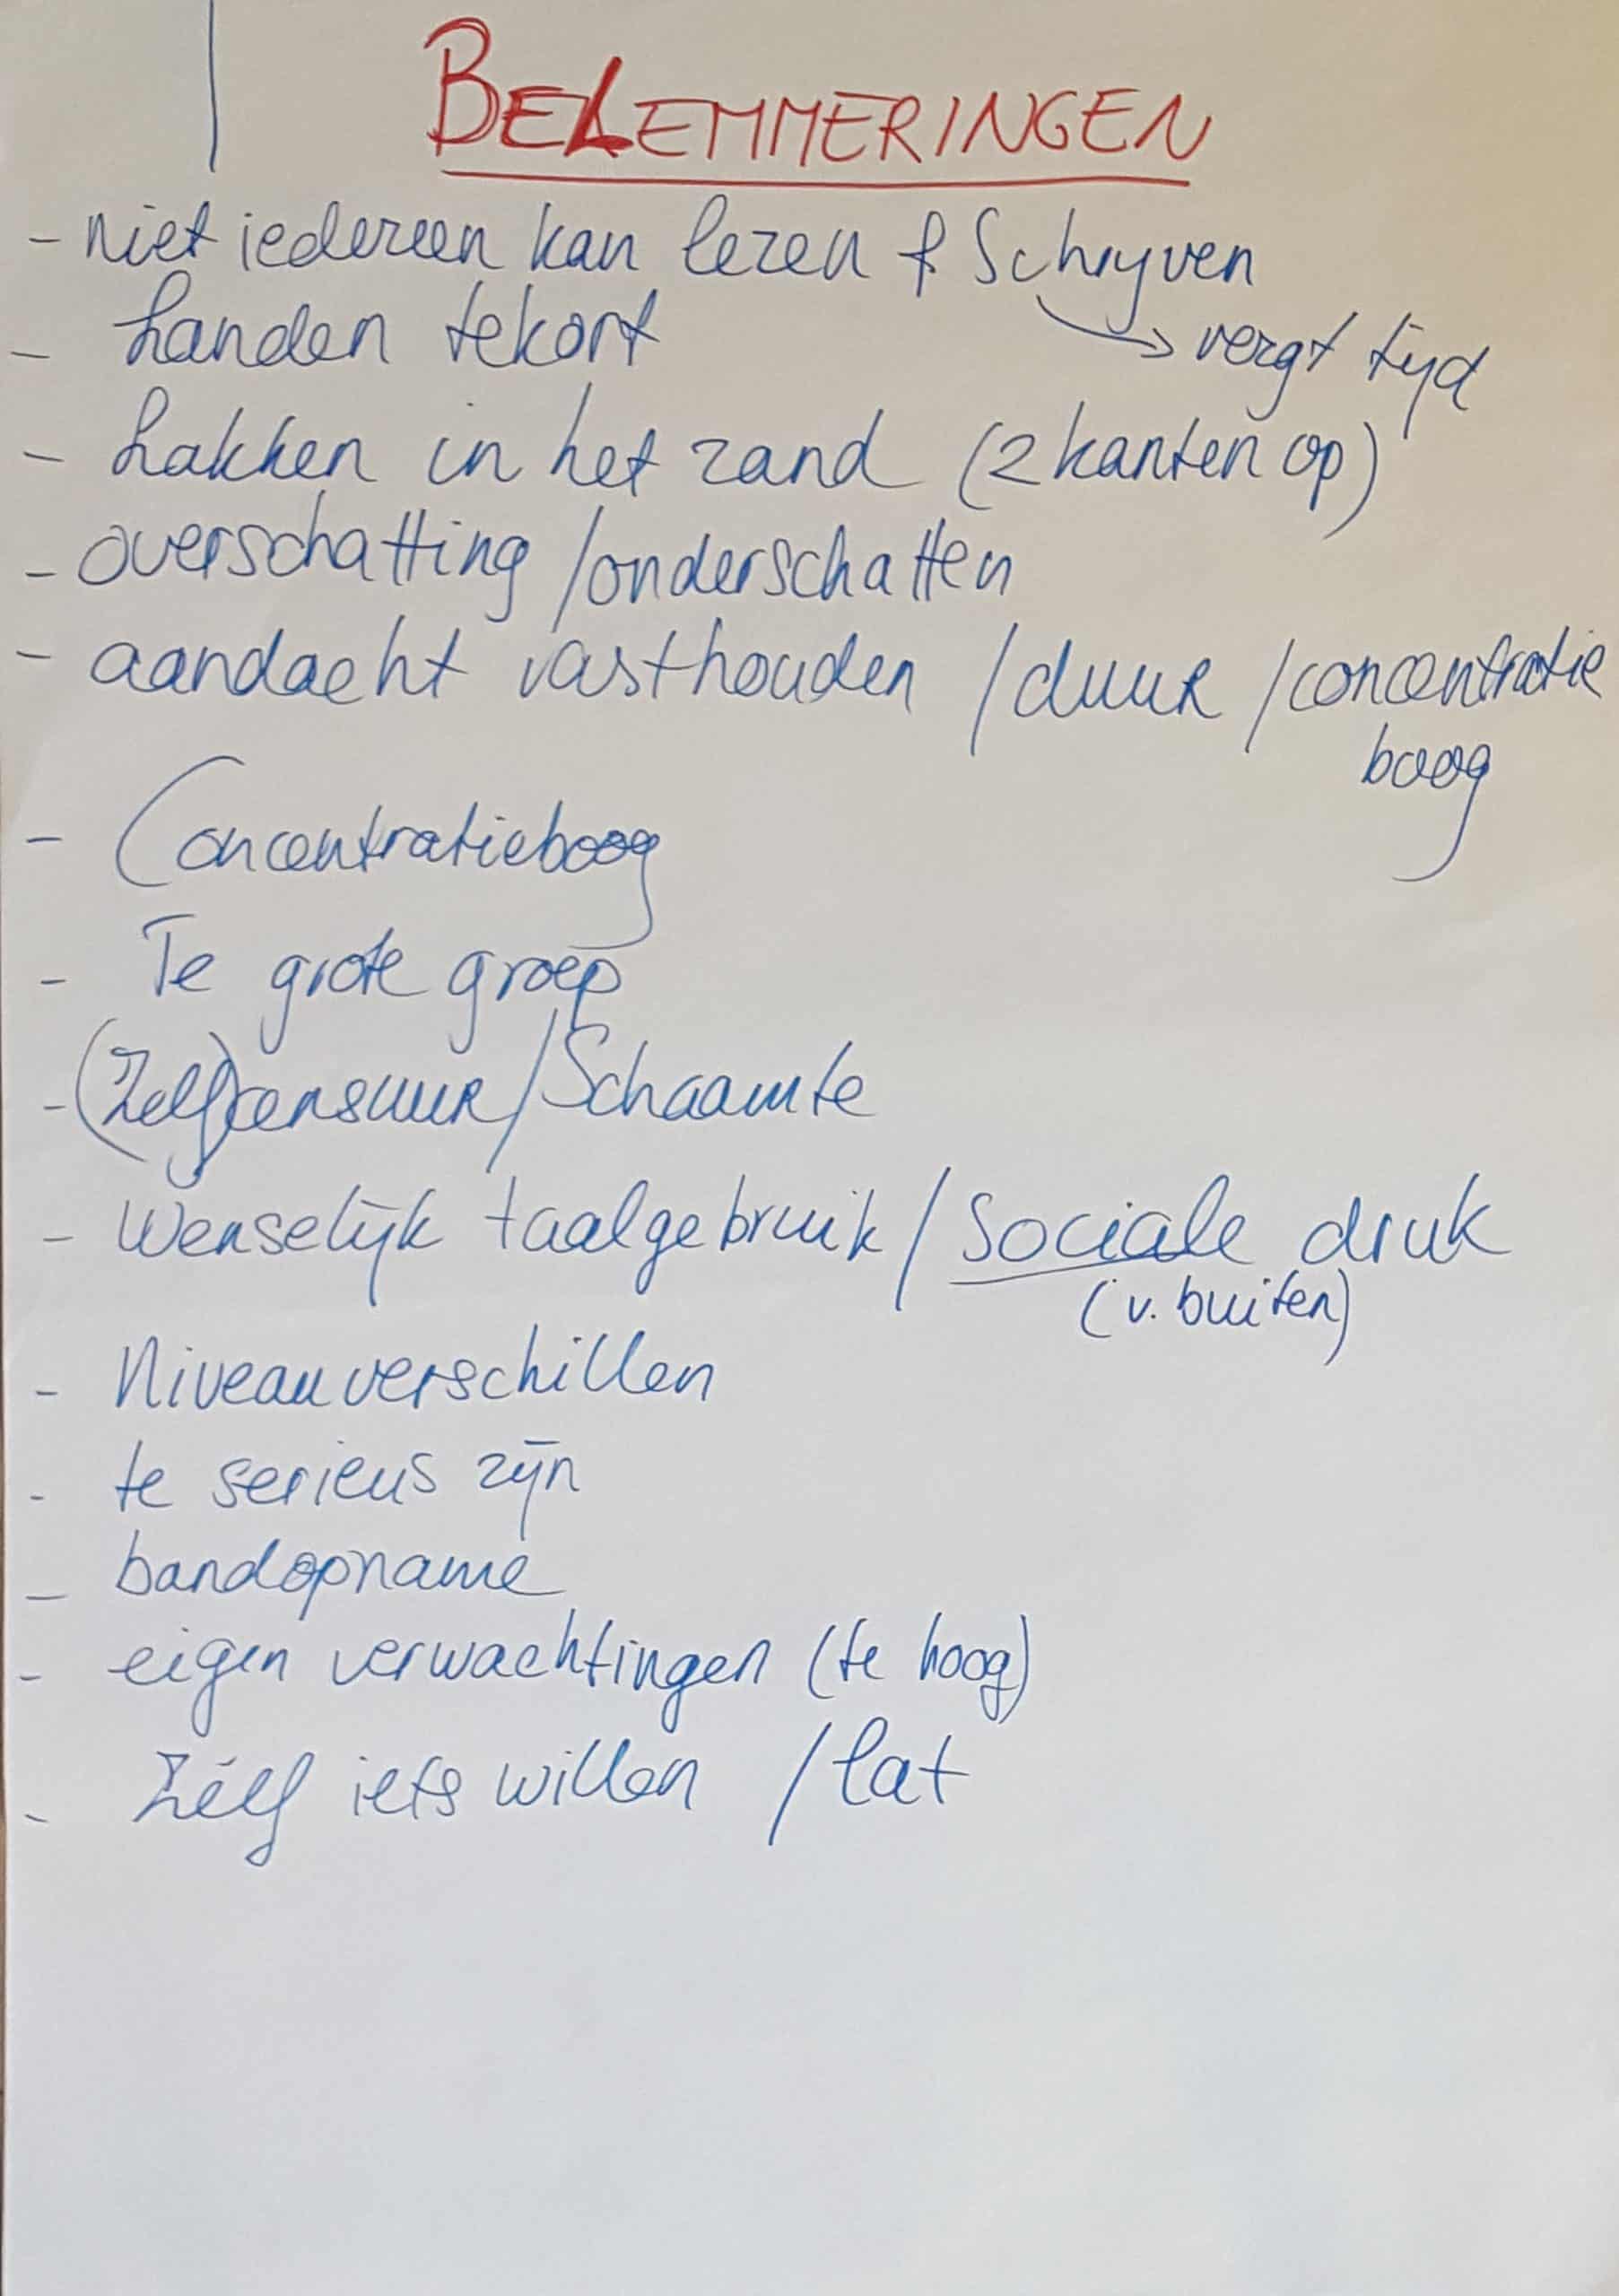 BELEMMERINGEN
- niet iedereen kan lezen & schrijven
→ vergt tijd
- handen tekort
- hakken in het zand (2 kanten op)
- overschatting / onderschatten
- aandacht vasthouden / duur / concentratie
boog
- Concentratieboog
- Te grote groep
- (Zelf)censuur / Schaamte
- Wenselijk taalgebruik / Sociale druk
(v. buiten)
- Niveauverschillen
- te serieus zijn
- bandopname
- eigen verwachtingen (te hoog)
- Zélf iets willen / lat